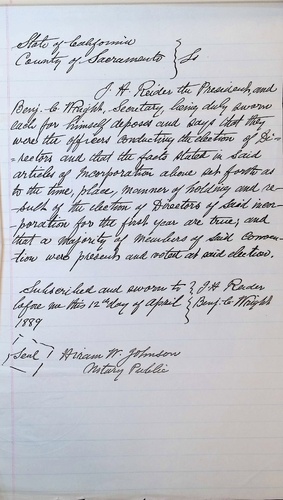 State of California } Ss
County of Sacramento
J. H. Reider the President, and
Benj. C. Wright, Secretary, being duly sworn
each for himself deposes and says that they
were the officers conducting the election of Di-
-rectors and that the facts stated in said
articles of Incorporation above set forth as
to the time, place, manner of holding and re-
sult of the election of Directors of said incor-
poration for the first year are true; and
that a majority of members of said Conven-
tion were present and voted at said election.
Subscribed and sworn to } J. H. Reider
before me this 12th day of April } Benj. C. Wright
1889
Seal Hiram W. Johnson
Notary Public